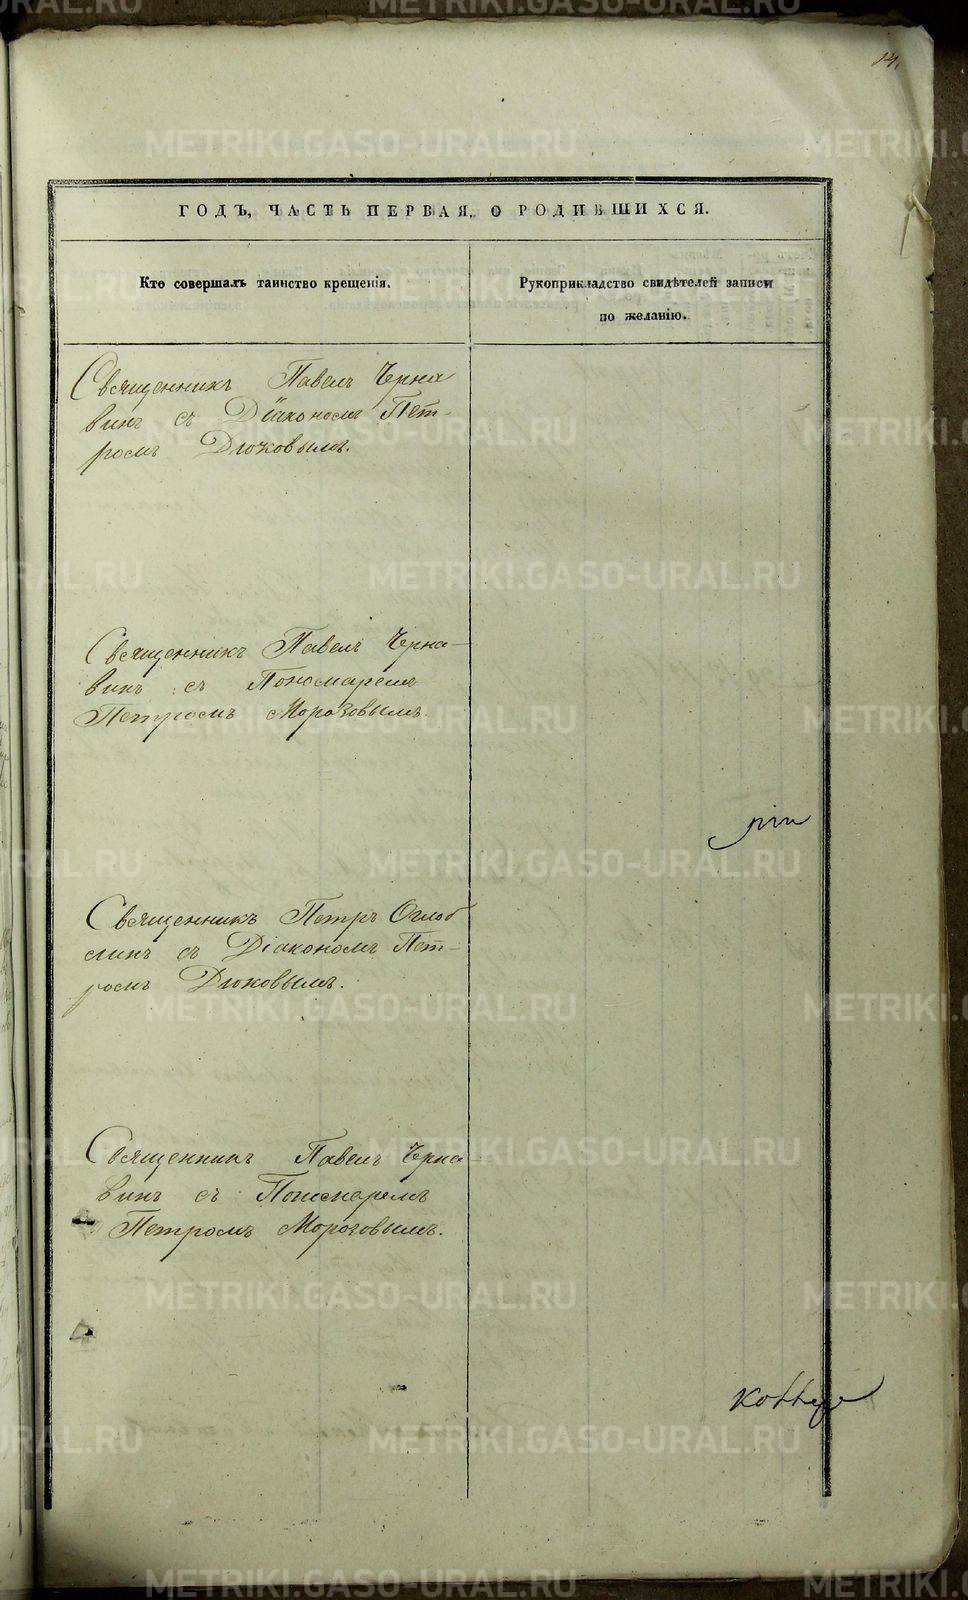 14.
ГОДЪ, ЧАСТЬ ПЕРВАЯ, О РОДИВШИХСЯ.
Кто совершалъ таинство крещенія.
Рукоприкладство свидѣтелей записи
по желанію.
Священникъ Павелъ Черна
винъ съ Діакономъ Пет-
ромъ Дюковымъ.
Священникъ Павелъ Черна-
винъ съ Пономаремъ
Петромъ Морозовымъ.
Священникъ Петръ Оглоб
линъ съ Діакономъ Пет-
ромъ Дюковымъ.
Священникъ Павелъ Черна-
винъ съ Пономаремъ
Петромъ Морозовымъ.
METRIKI.GASO-URAL.RU